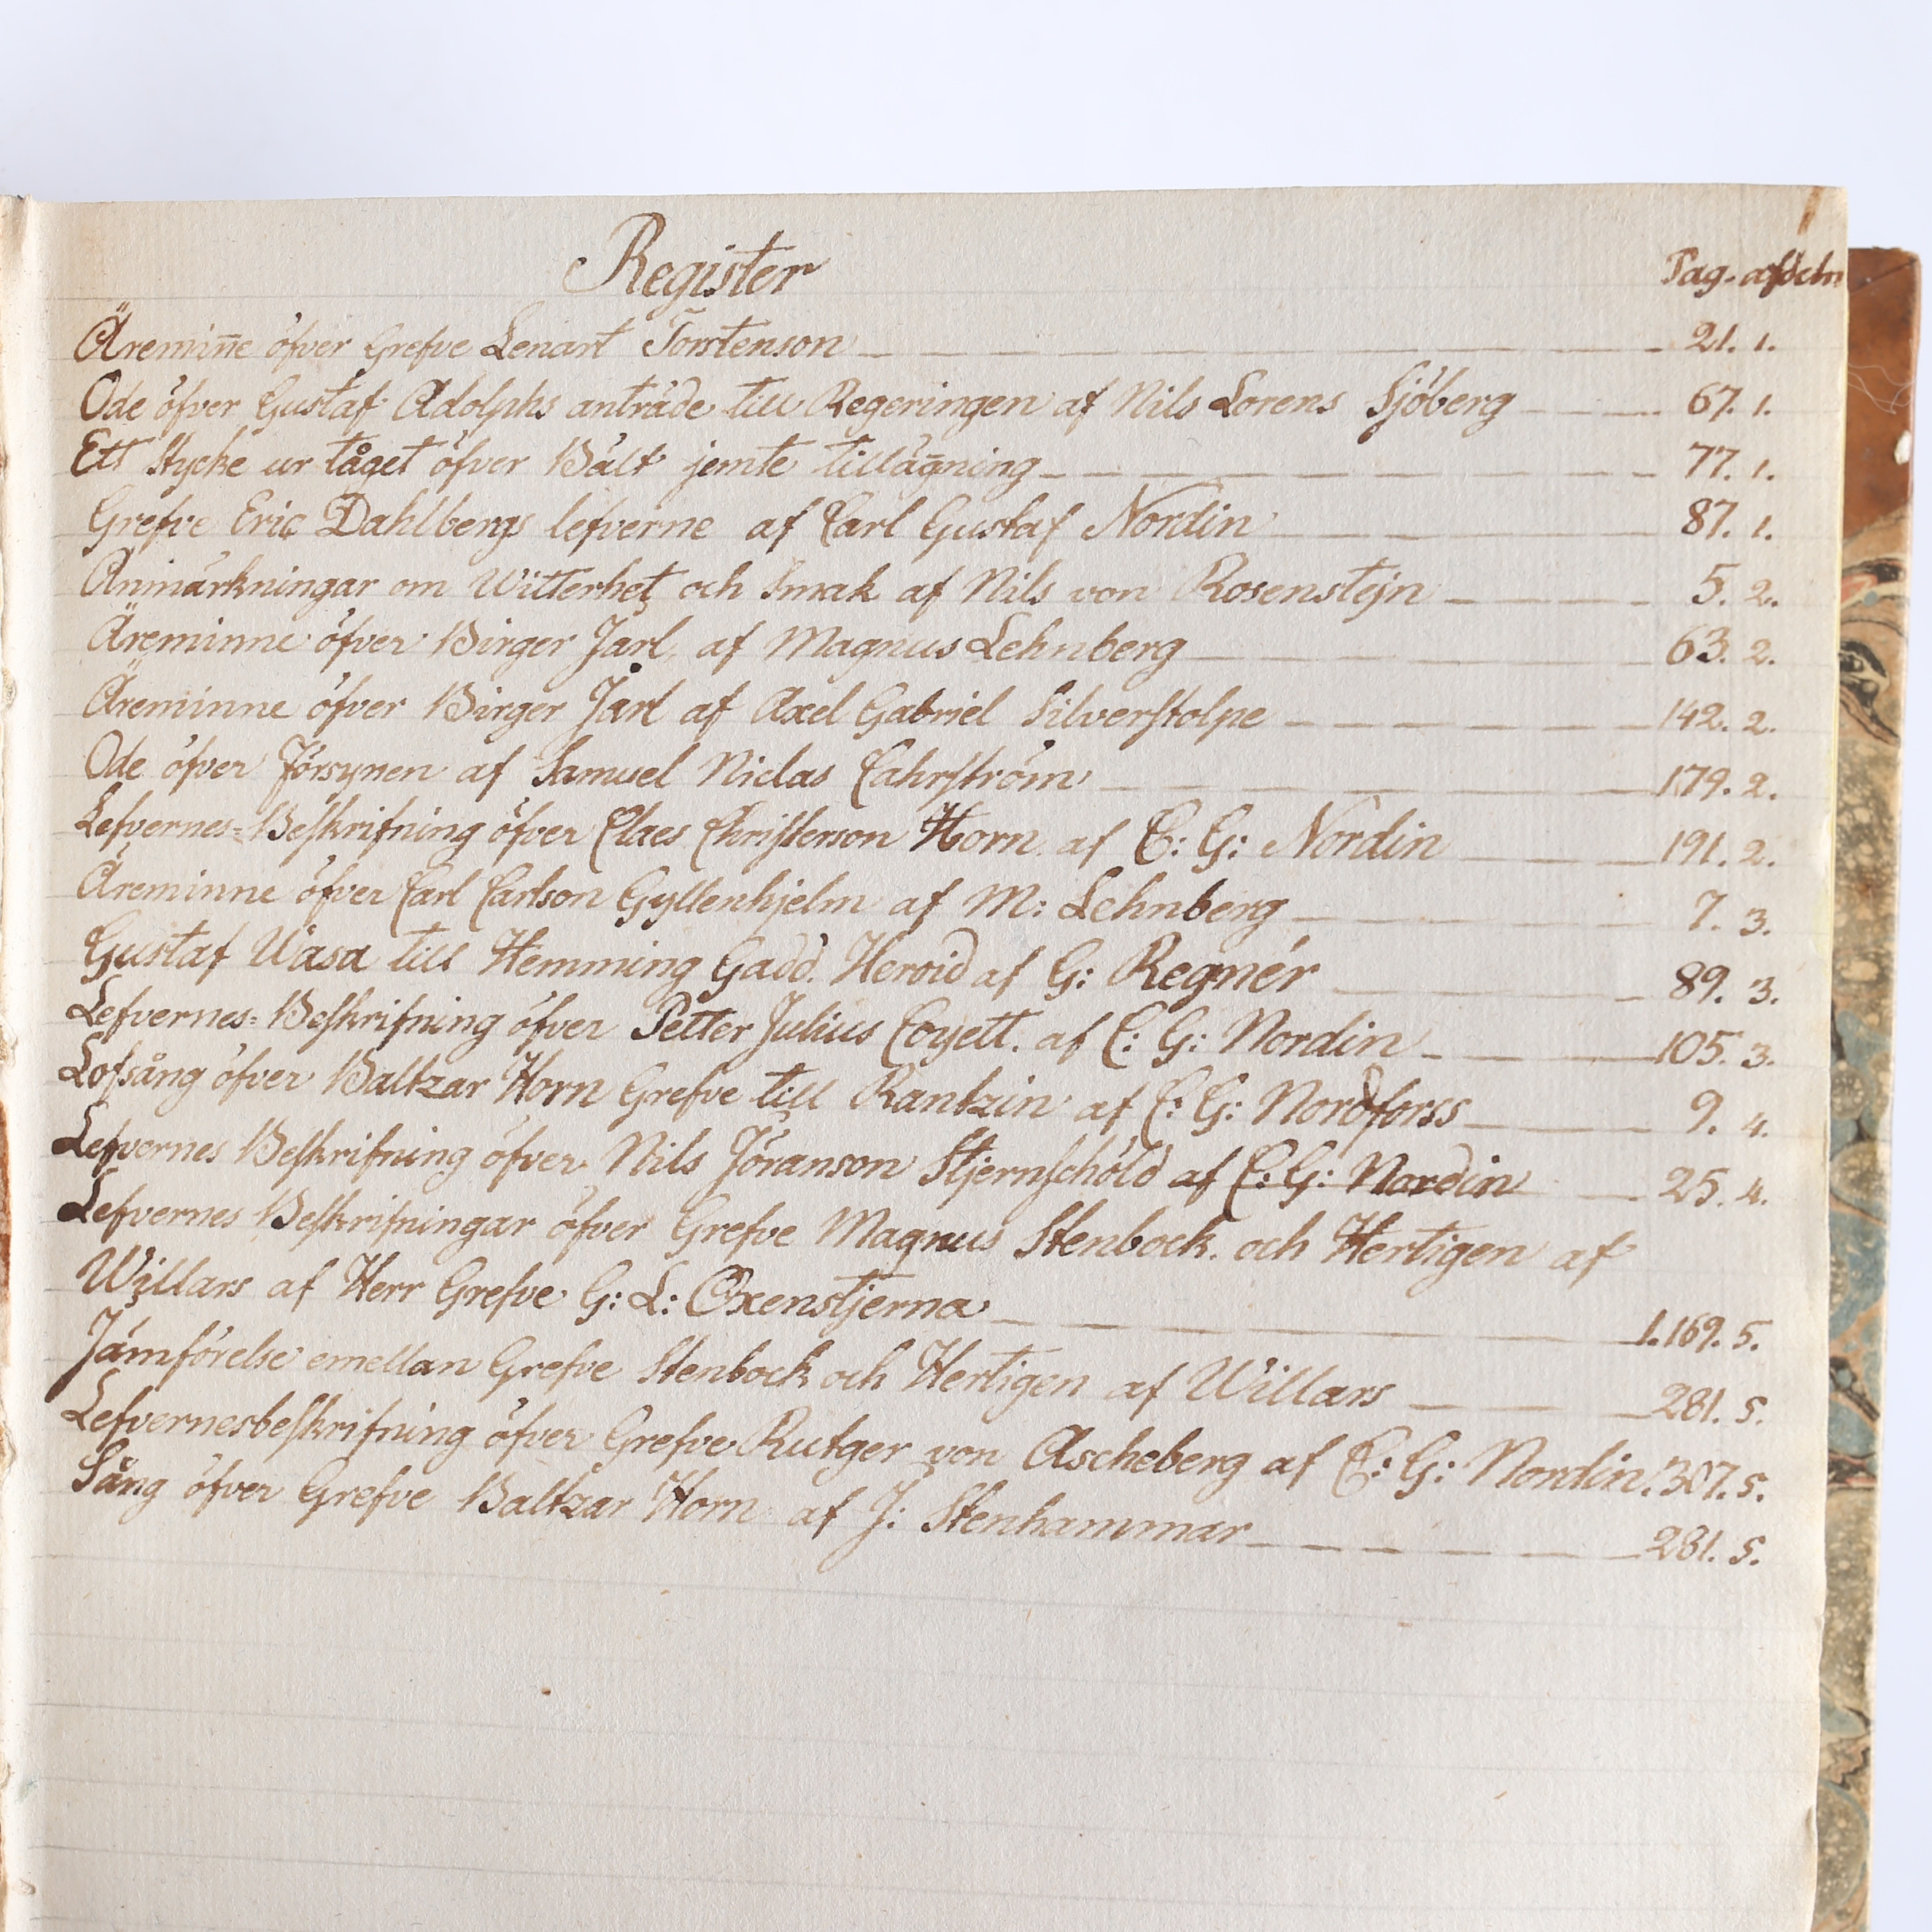 Register
Pag. afdeln
Äremin̄e öfver Grefve Lenart Torstenson 21. 1.
Ode öfver Gustaf Adolphs anträde till Regeringen af Nils Lorens Sjöberg 67. 1.
Ett Stycke ur tåget öfver Bält jemte tilläg̅ning 77. 1.
Grefve Eric Dahlbergs lefverne af Carl Gustaf Nordin 87. 1.
Anmärkningar om Witterhet och Smak af Nils von Rosenstejn 5. 2.
Äreminne öfver Birger Jarl, af Magnus Lehnberg 63. 2.
Äreminne öfver Birger Jarl af Axel Gabriel Silverstolpe 142. 2.
Ode öfver Försynen af Samuel Niclas Cahrström 179. 2.
Lefvernes=Beskrifning öfver Claes Christerson Horn. af C: G: Nordin 191. 2.
Äreminne öfver Carl Carlson Gyllenhjelm af M: Lehnberg 7. 3.
Gustaf Wasa till Hemming Gadd. Heroid af G: Regnér 89. 3.
Lefvernes=Beskrifning öfver Petter Julius Coyett. af C: G: Nordin 105. 3.
Lofsång öfver Baltzar Horn Grefve till Rantzin af C: G: Nordforss 9. 4.
Lefvernes Beskrifning öfver Nils Jöranson Stjernschöld af C: G: Nordin 25. 4.
Lefvernes Beskrifningar öfver Grefve Magnus Stenbock. och Hertigen af
Willars af Herr Grefve G: L: Oxenstjerna 1. 169. 5.
Jämförelse emellan Grefve Stenbock och Hertigen af Willars 281. 5.
Lefvernesbeskrifning öfver Grefve Rutger von Ascheberg af C: G: Nordin. 307. 5.
Sång öfver Grefve Baltzar Horn af J: Stenhammar 281. 5.